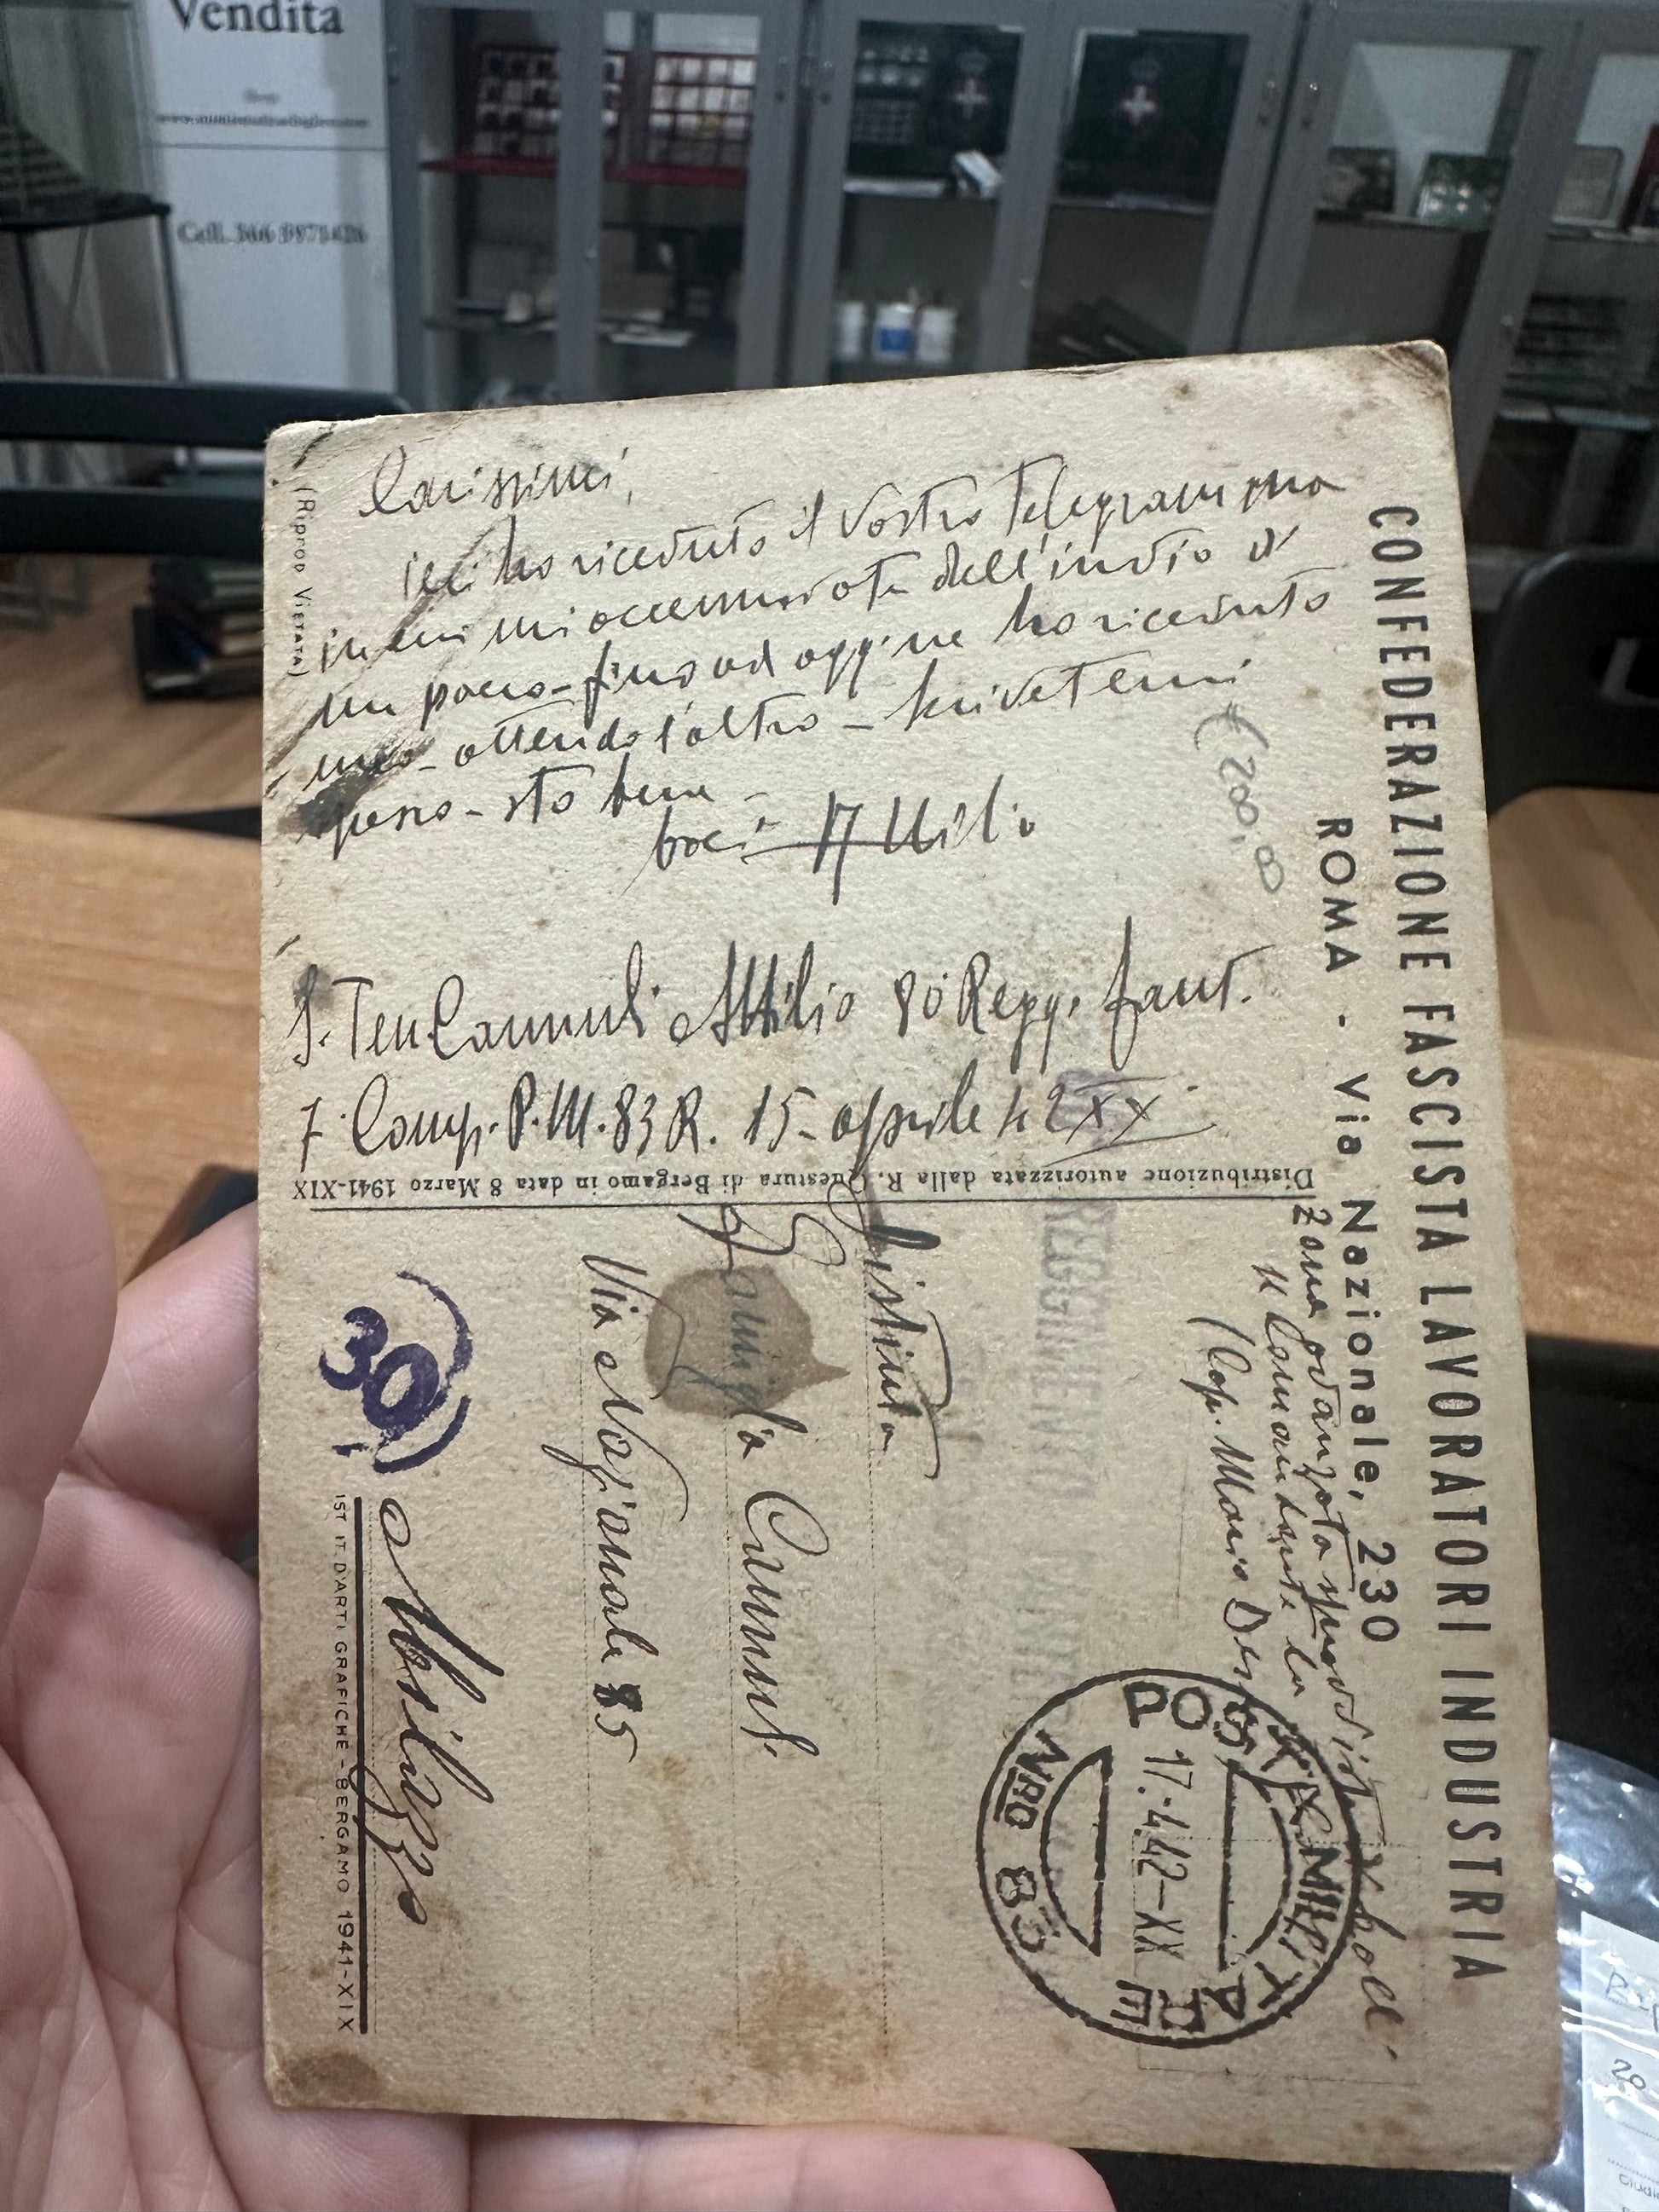 Vendita
CONFEDERAZIONE FASCISTA LAVORATORI INDUSTRIA
ROMA - Via Nazionale, 230
(Riprod. Vietata)
Carissimi,
ieri ho ricevuto il vostro telegramma
in cui mi accennavate dell'invio di
un pacco - fino ad oggi ne ho ricevuto
uno - attendo l'altro - scrivetemi
spesso - sto bene -
baci Attilio
€ 200,00
S. Ten Cannuli Attilio 80 Regg. fant.
7 Comp. P.M. 83 R. 15- aprile 42 XX
Distribuzione autorizzata dalla R. Questura di Bergamo in data 8 Marzo 1941-XIX
Zona avanzata sprovvista
Il Comandante la
(Cap. Mario
POSTA MILITARE
17.4.42-XX
NRO 83
Famiglia Cannuli
Via Nazionale 85
30
IST. IT. D'ARTI GRAFICHE - BERGAMO 1941-XIX
20